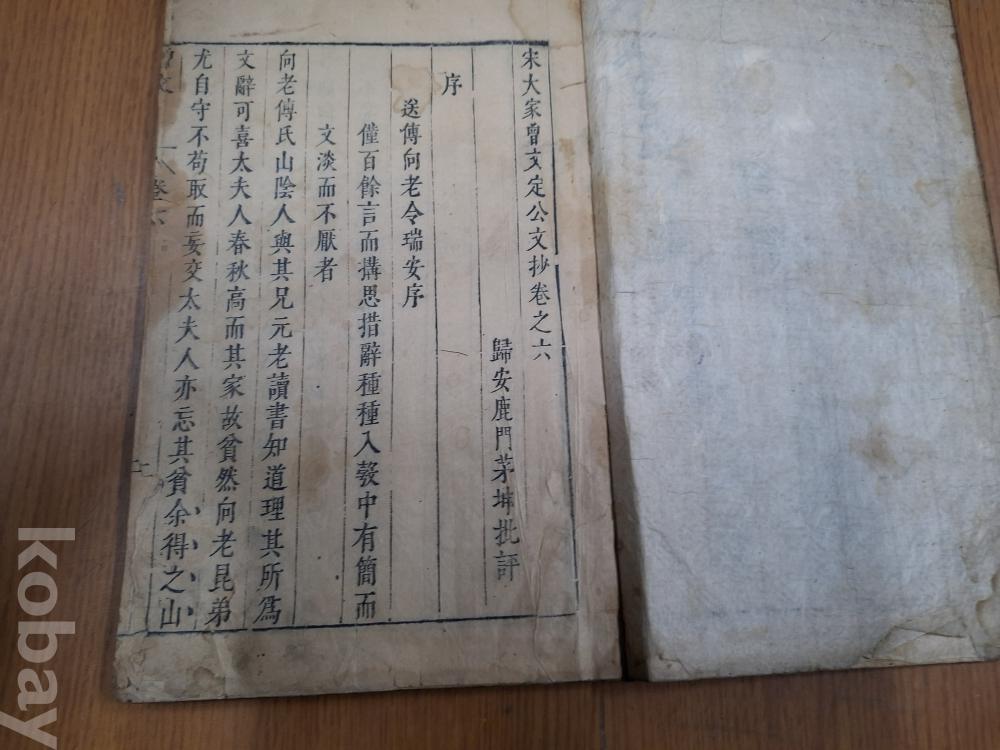 宋大家曾文定公文抄卷之六
歸安鹿門茅坤批評
序
送傅向老令瑞安序
僅百餘言而搆思措辭種種入彀中有簡而
文淡而不厭者
向老傅氏山陰人與其兄元老讀書知道理其所爲
文辭可喜太夫人春秋高而其家故貧然向老昆弟
尤自守不苟取而妄交太夫人亦忘其貧余得之山
曾文
卷六
kobay